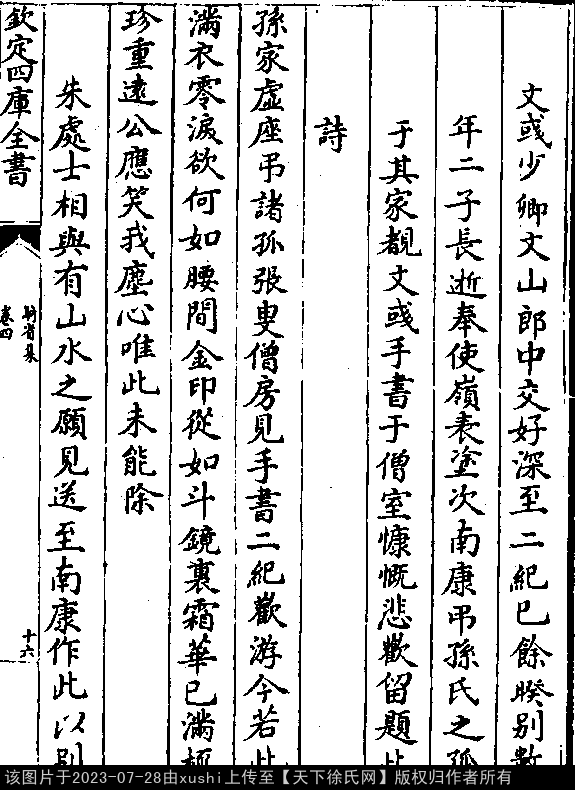 文彧少卿文山郎中交好深至二紀已餘暌別數
年二子長逝奉使嶺表塗次南康弔孫氏之孤
于其家覩文彧手書于僧室慷慨悲歡留題此
詩
孫家虛座弔諸孤張叟僧房見手書二紀歡游今若此
滿衣零淚欲何如腰間金印從如斗鏡裏霜華已滿梳
珍重遠公應笑我塵心唯此未能除
朱處士相與有山水之願見送至南康作此以別
欽定四庫全書
卷四
十六
该图片于2023-07-28由xushi上传至【天下徐氏网】版权归作者所有